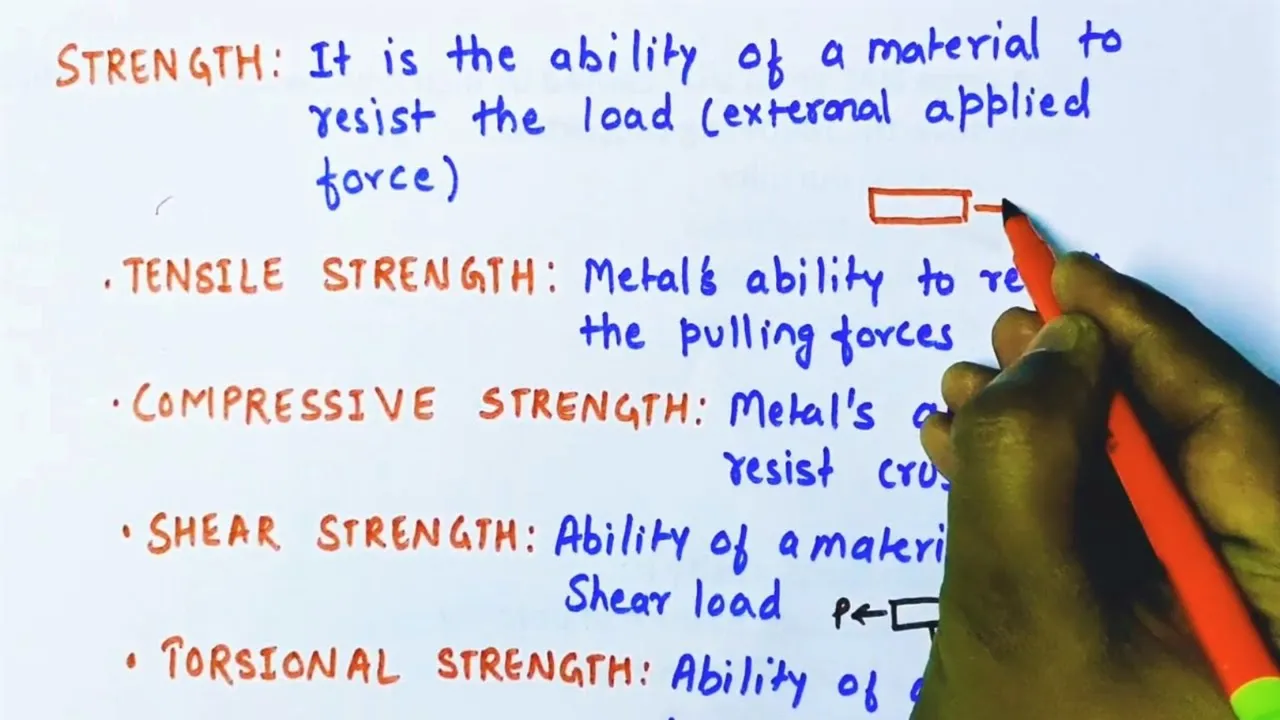 STRENGTH: It is the ability of a material to
resist the load (external applied
force)
. TENSILE STRENGTH: Metal's ability to
the pulling forces
. COMPRESSIVE STRENGTH: Metal's
resist
• SHEAR STRENGTH: Ability of a
Shear load P
• TORSIONAL STRENGTH: Ability of